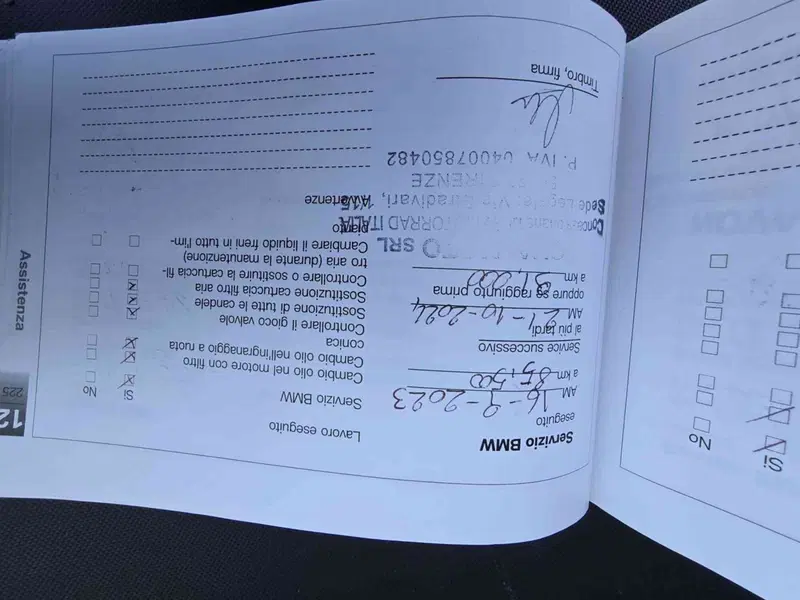 Servizio BMW
eseguito
AM 16-9-2023
a km 85,500
Service successivo
al più tardi
AM 21-10-2024
oppure se raggiunto prima
a km
SRL
ITALIA
Stradivari,
FIRENZE
P. IVA 04007850482
Timbro, firma
Lavoro eseguito
Servizio BMW
Sì
No
Cambio olio nel motore con filtro
Cambio olio nell'ingranaggio a ruota
conica
Controllare il gioco valvole
Sostituzione di tutte le candele
Sostituzione cartuccia filtro aria
Controllare o sostituire la cartuccia fil-
tro aria (durante la manutenzione)
Cambiare il liquido freni in tutto l'im-
pianto
Avvertenze
12
225
Assistenza
Sì
No